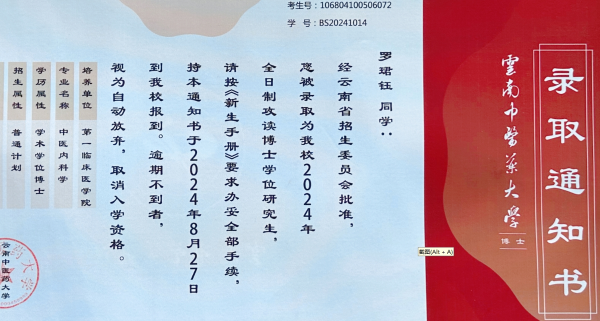 录取通知书
雲南中醫藥大學
博士
考生号：106804100506072
学 号：BS20241014
罗珺钰 同学：
经云南省招生委员会批准，
您被录取为我校2024年
全日制攻读博士学位研究生，
请按《新生手册》要求办妥全部手续，
持本通知书于2024年8月27日
到我校报到。逾期不到者，
视为自动放弃，取消入学资格。
培养单位 第一临床医学院
专业名称 中医内科学
学历属性 学术学位博士
招生属性 普通计划
云南中医药大学
截图(Alt + A)